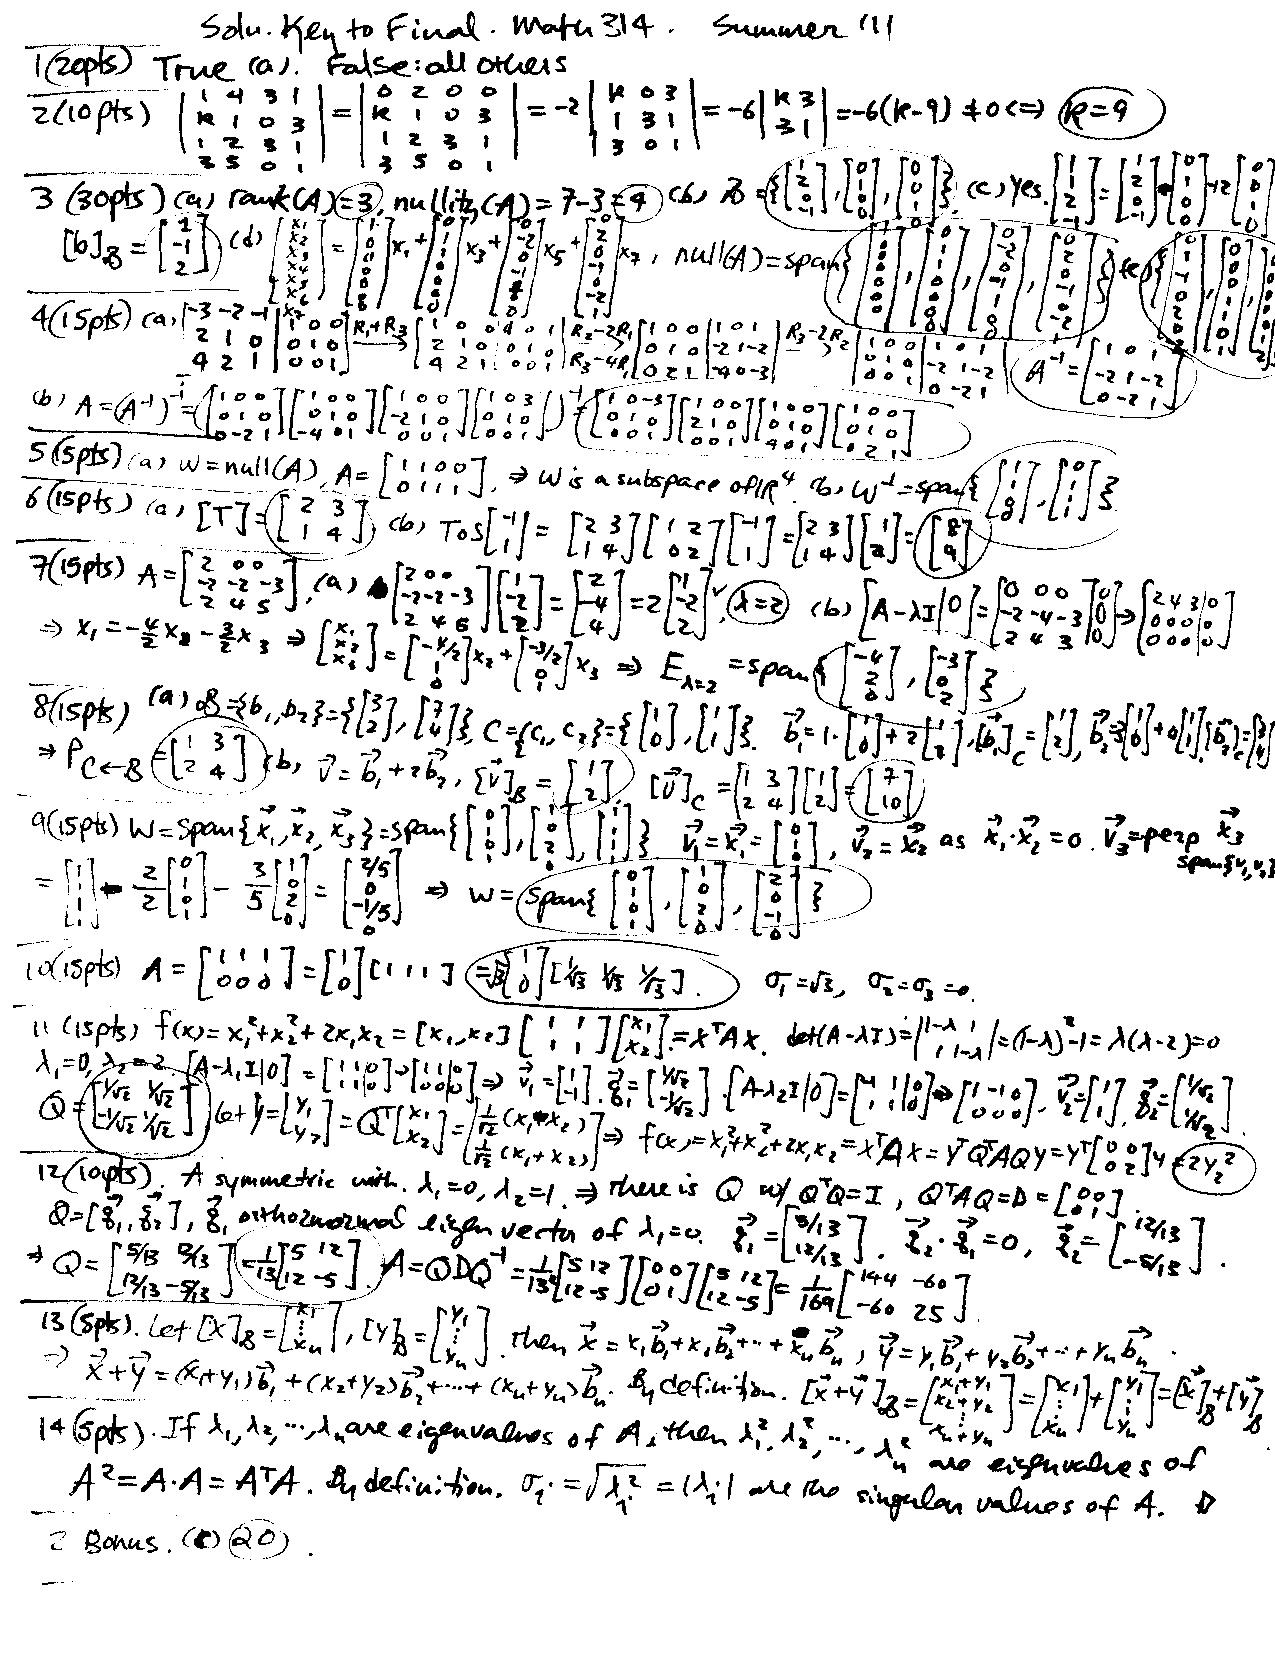 Solu. Key to Final. Math 314. Summer '11
1(20pts) True (a). False: all others
2(10pts) |1 4 3 1; k 1 0 3; 1 2 3 1; 3 5 0 1| = |0 2 0 0; k 1 0 3; 1 2 3 1; 3 5 0 1| = -2 |k 0 3; 1 3 1; 3 0 1| = -6 |k 3; 3 1| = -6(k-9) ≠ 0 <=> k=9
3 (30pts) (a) rank(A)=3, nullity(A) = 7-3=4 (b) B = (c) Yes.
[b]_B = [1; -1; 2] (d) x1 + x3 + x5 + x7, null(A)=span{
4(15pts) (a) [-3 -2 -1 | 1 0 0; 2 1 0 | 0 1 0; 4 2 1 | 0 0 1] R1+R3 → [1 0 0 | 1 0 1; 2 1 0 | 0 1 0; 4 2 1 | 0 0 1] R2-2R1 R3-4R1 → [1 0 0 | 1 0 1; 0 1 0 | -2 1 -2; 0 2 1 | -4 0 -3] R3-2R2 → A^-1 = [1 0 1; -2 1 -2; 0 -2 1]
(b) A = (A^-1)^-1 = ([1 0 0; 0 1 0; 0 -2 1][1 0 0; 0 1 0; -4 0 1][1 0 0; -2 1 0; 0 0 1])^-1 =
5(5pts) (a) W=null(A), A = [1 1 0 0; 0 1 1 1], ⇒ W is a subspace of R^4. (b) W^⊥=span{[1; 1; 0; 0], [0; 1; 1; 1]}
6(15pts) (a) [T]=[2 3; 1 4] (b) T∘S[-1; 1] = [2 3; 1 4][1 2; 0 2][-1; 1]=[2 3; 1 4][1; 2]=[8; 9]
7(15pts) A=[2 0 0; -2 -2 -3; 2 4 5], (a) [2 0 0; -2 -2 -3; 2 4 5][1; -2; 2]=[2; -4; 4]=2[1; -2; 2] ✓, λ=2 (b) [A-λI|0]=[0 0 0|0; -2 -4 -3|0; 2 4 3|0]→[2 4 3|0; 0 0 0|0; 0 0 0|0]
⇒ x1 = -4/2 x2 - 3/2 x3 ⇒ [x1; x2; x3]=[-4/2; 1; 0]x2+[-3/2; 0; 1]x3 ⇒ E_λ=2 = span{[-4; 2; 0], [-3; 0; 2]}
8(15pts) (a) B={b1, b2}={[3; 2], [7; 4]}, C={c1, c2}={[1; 0], [1; 1]}.
⇒ P_C←B = [1 3; 2 4] (b) v = b1+2b2, [v]_B = [1; 2] [v]_C = [1 3; 2 4][1; 2]=[7; 10]
9(15pts) W=span{x1, x2, x3}=span{[0; 1; 0; 1], [1; 0; 2; 0], [1; 1; 1; 1]} v1=x1, v2=x2 as x1·x2=0. v3=perp x3 span{v1,v2}
= [1; 1; 1; 1] - 2/2 [0; 1; 0; 1] - 3/5 [1; 0; 2; 0] = [2/5; 0; -1/5; 0] ⇒ W = span{[0; 1; 0; 1], [1; 0; 2; 0], [2; 0; -1; 0]}
10(15pts) A = [1 1 1; 0 0 0]=[1; 0][1 1 1] =√3[1; 0][1/√3 1/√3 1/√3]. σ1=√3, σ2=σ3=0.
11 (15pts) f(x)=x1²+x2²+2x1x2=[x1, x2][1 1; 1 1][x1; x2]=x^T A x. det(A-λI)=|1-λ 1; 1 1-λ|=(1-λ)²-1=λ(λ-2)=0
λ1=0, λ2=2. [A-λ1I|0] = [1 1|0; 1 1|0]→[1 1|0; 0 0|0]⇒ v1=[1; -1]. q1=[1/√2; -1/√2]. [A-λ2I|0]=[-1 1|0; 1 -1|0]→[1 -1 0; 0 0 0]. v2=[1; 1], q2=[1/√2; 1/√2].
Q=[1/√2 1/√2; -1/√2 1/√2] Let y=[y1; y2]=Q^T[x1; x2]=[1/√2(x1-x2); 1/√2(x1+x2)]⇒ f(x)=x1²+x2²+2x1x2=x^T A x=y^T Q^T A Q y=y^T[0 0; 0 2]y=2y2²
12(10pts). A symmetric with. λ1=0, λ2=1. ⇒ there is Q w/ Q^TQ=I, Q^TAQ=D=[0 0; 0 1].
Q=[q1, q2], q1 orthonormal eigenvector of λ1=0. q1=[5/13; 12/13]. q2·q1=0, q2=[12/13; -5/13].
⇒ Q=[5/13 12/13; 12/13 -5/13]=1/13[5 12; 12 -5]. A=QDQ^-1=1/13²[5 12; 12 -5][0 0; 0 1][5 12; 12 -5]=1/169[144 -60; -60 25]
13(5pts). Let [x]_B=[x1; ⋮; xn], [y]_B=[y1; ⋮; yn]. then x = x1b1+x1b2+···+xnbn, y=y1b1+y2b2+···+ynbn.
⇒ x+y=(x1+y1)b1+(x2+y2)b2+···+(xn+yn)bn. By definition. [x+y]_B=[x1+y1; x2+y2; ⋮; xn+yn]=[x1; ⋮; xn]+[y1; ⋮; yn]=[x]_B+[y]_B
14(5pts). If λ1, λ2, ···, λn are eigenvalues of A, then λ1², λ2², ···, λn² are eigenvalues of
A²=A·A=A^TA. By definition. σi=√λi²=|λi| are the singular values of A.
2 Bonus. (c) 20.